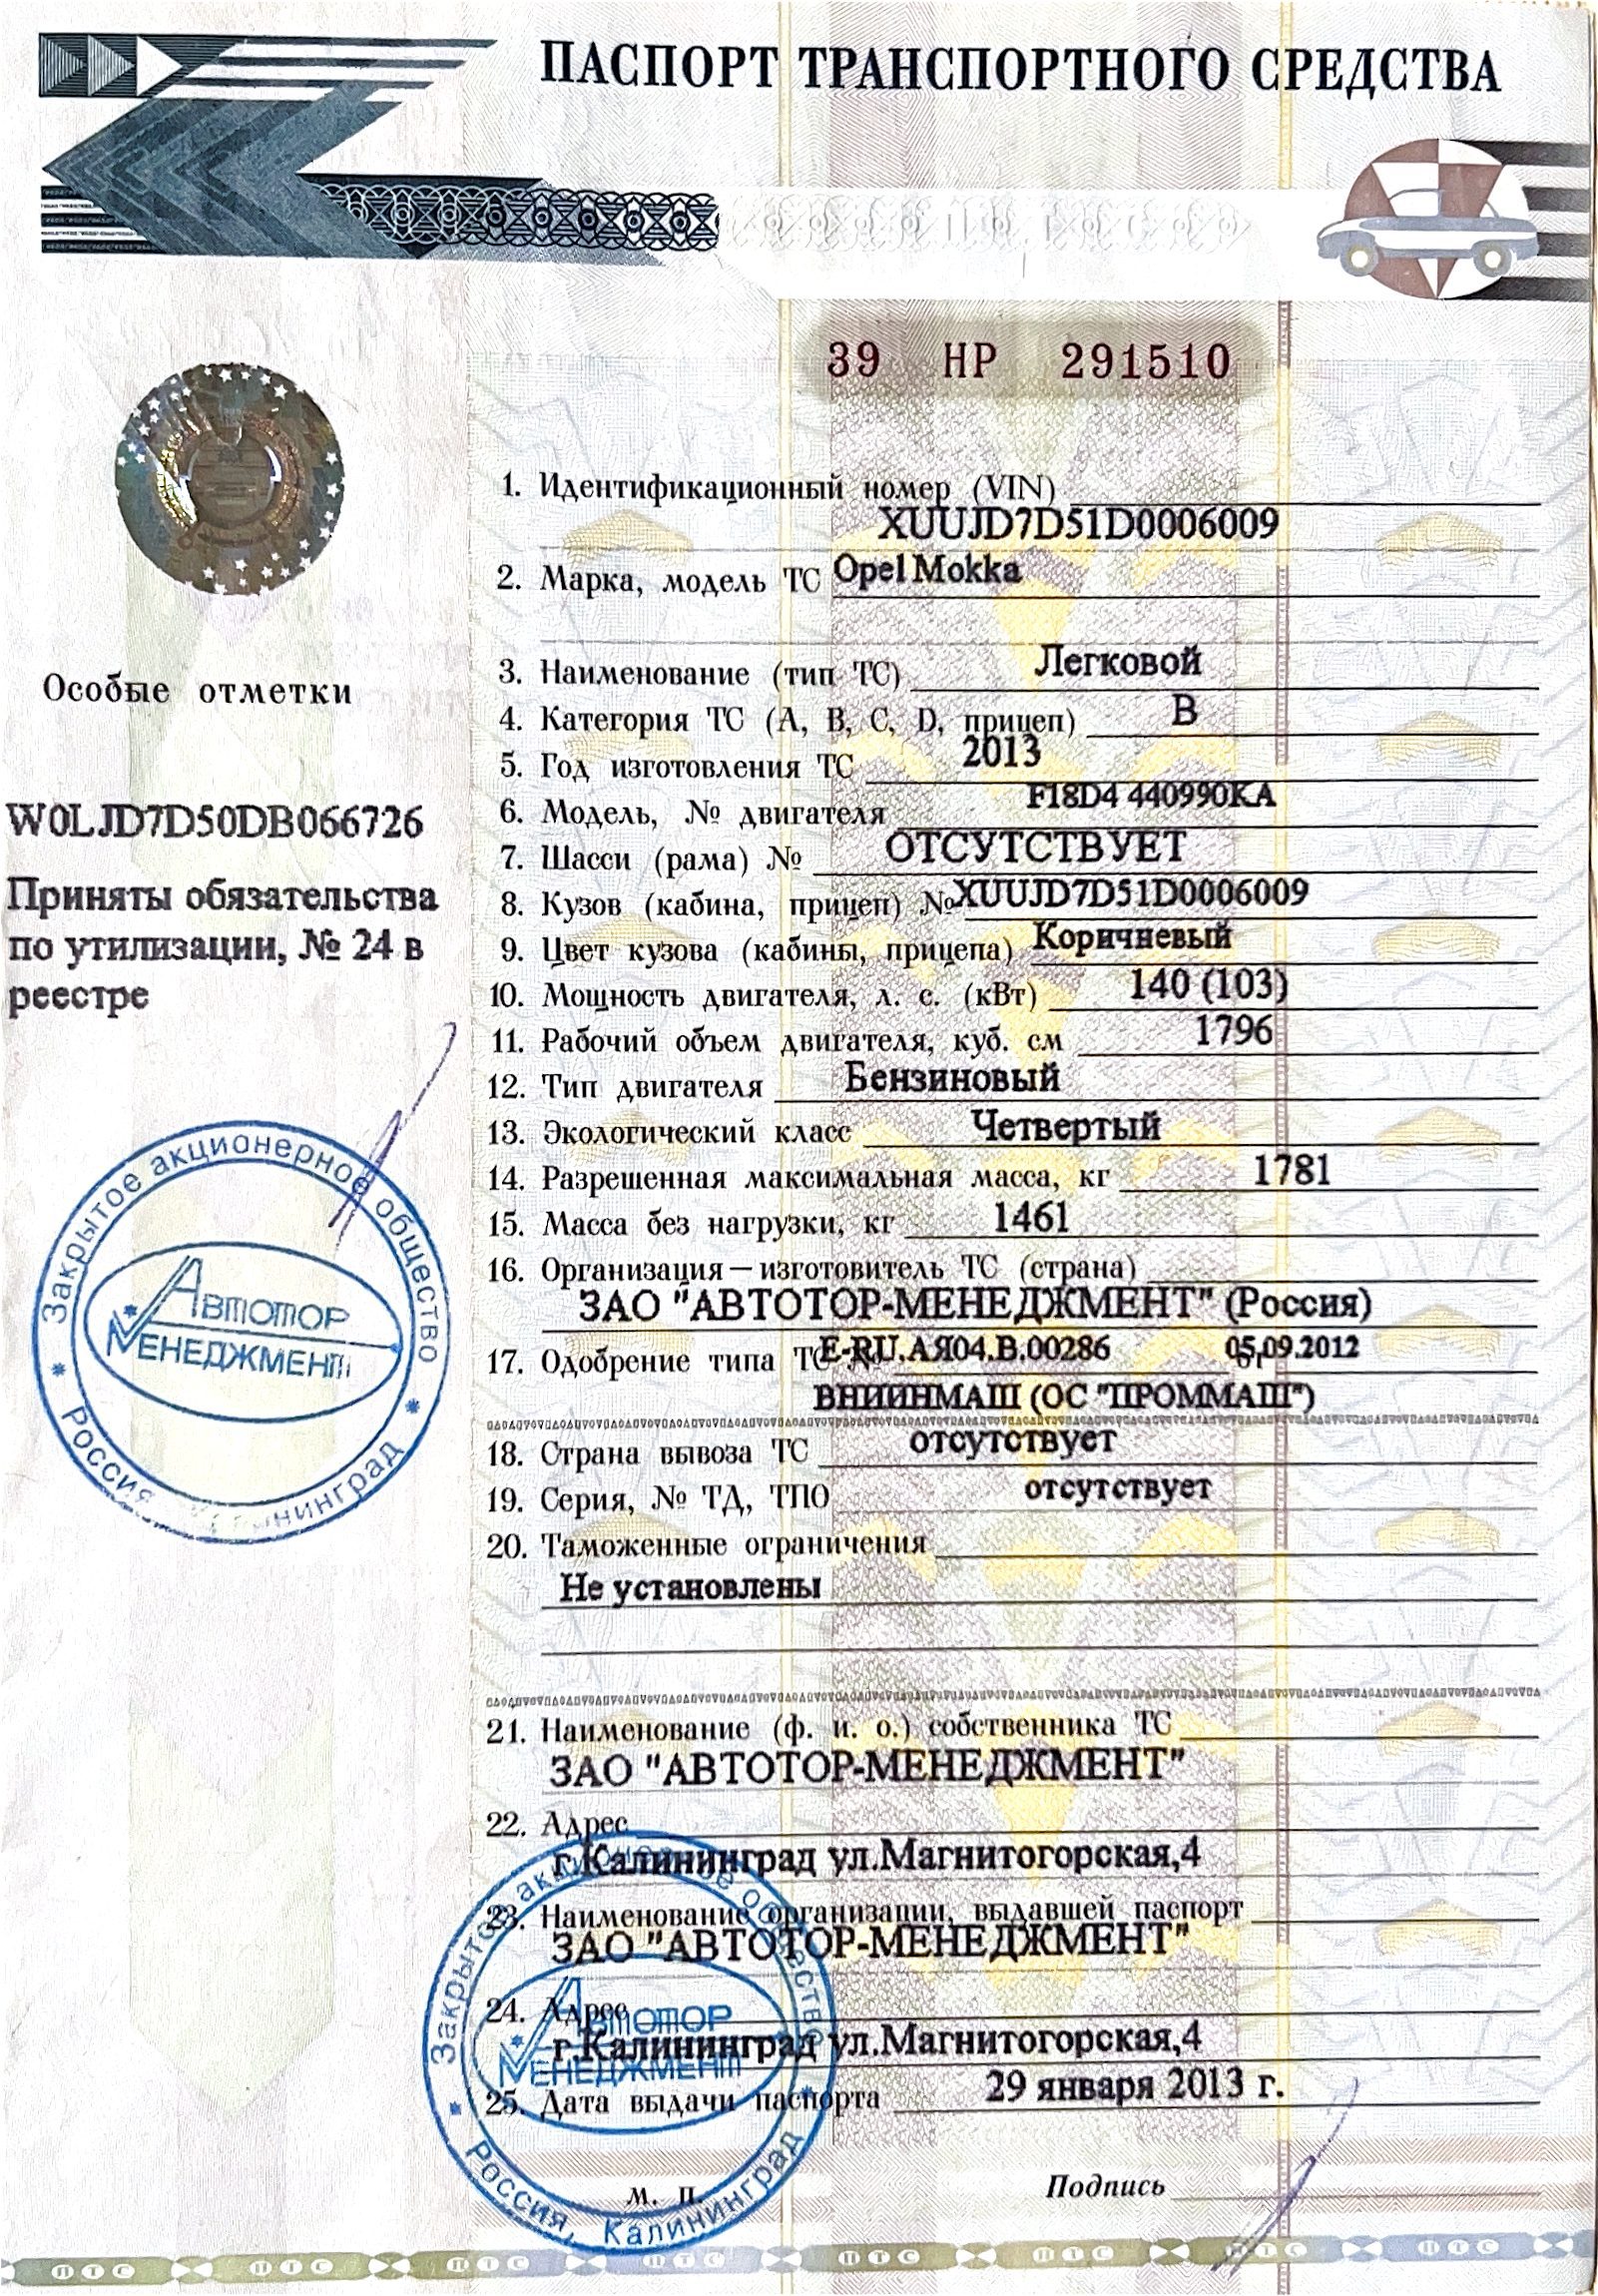 ПАСПОРТ ТРАНСПОРТНОГО СРЕДСТВА
39 НР 291510
1. Идентификационный номер (VIN)
XUUJD7D51D0006009
2. Марка, модель ТС Opel Mokka
3. Наименование (тип ТС) Легковой
4. Категория ТС (А, В, С, D, прицеп) В
5. Год изготовления ТС 2013
6. Модель, № двигателя F18D4 440990KA
7. Шасси (рама) № ОТСУТСТВУЕТ
8. Кузов (кабина, прицеп) № XUUJD7D51D0006009
9. Цвет кузова (кабины, прицепа) Коричневый
10. Мощность двигателя, л. с. (кВт) 140 (103)
11. Рабочий объем двигателя, куб. см 1796
12. Тип двигателя Бензиновый
13. Экологический класс Четвертый
14. Разрешенная максимальная масса, кг 1781
15. Масса без нагрузки, кг 1461
16. Организация—изготовитель ТС (страна)
ЗАО "АВТОТОР-МЕНЕДЖМЕНТ" (Россия)
17. Одобрение типа ТС № E-RU.АЯ04.В.00286 05.09.2012
ВНИИНМАШ (ОС "ПРОММАШ")
18. Страна вывоза ТС отсутствует
19. Серия, № ТД, ТПО отсутствует
20. Таможенные ограничения
Не установлены
21. Наименование (ф. и. о.) собственника ТС
ЗАО "АВТОТОР-МЕНЕДЖМЕНТ"
22. Адрес
г.Калининград ул.Магнитогорская,4
23. Наименование организации, выдавшей паспорт
ЗАО "АВТОТОР-МЕНЕДЖМЕНТ"
24. Адрес
г.Калининград ул.Магнитогорская,4
25. Дата выдачи паспорта 29 января 2013 г.
М. П.
Подпись
Особые отметки
W0LJD7D50DB066726
Приняты обязательства
по утилизации, № 24 в
реестре
Закрытое акционерное общество
АВТОТОР
МЕНЕДЖМЕНТ
Россия
Закрытое акционерное общество
АВТОТОР
МЕНЕДЖМЕНТ
Россия, Калининград
ПТС ПТС ПТС ПТС ПТС ПТС ПТС ПТС